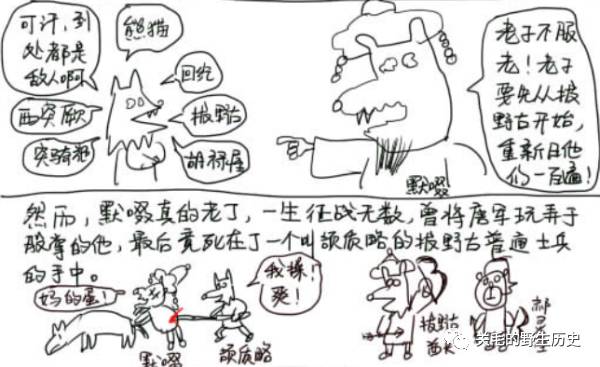 可汗,到
处都是
敌人啊
熊猫
回纥
西突厥
拔野古
突骑施
胡禄屋
老子不服
老!老子
要先从拔
野古开始,
重新日他
们一百遍!
默啜
然而,默啜真的老了,一生征战无数,曾将唐军玩弄于
股掌的他,最后竟死在了一个叫颉质略的拔野古普通士兵
的手中。
妈的蛋!
我操!
爽!
默啜
颉质略
拔野古
酋长
的野生历史